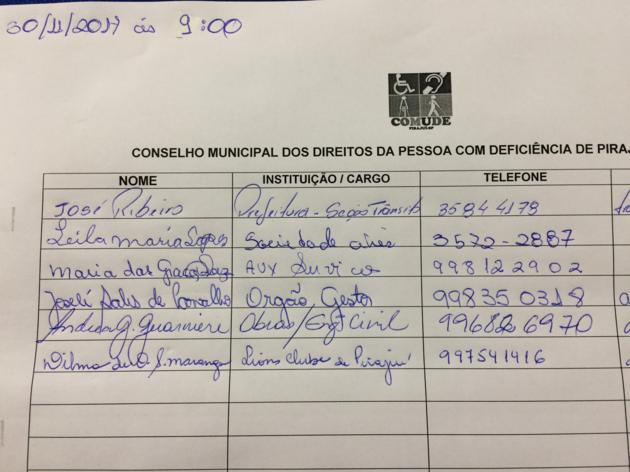 30/11/2017 ás 9:00
COMUDE
PIRAJUÍ-SP
CONSELHO MUNICIPAL DOS DIREITOS DA PESSOA COM DEFICIÊNCIA DE PIRAJ
NOME INSTITUIÇÃO / CARGO TELEFONE
José Ribeiro Prefeitura - Seção Trânsito 35844178
Leila Maria Sociedade 3572-2887
Maria das Graças Aux 998122902
de Carvalho Orgão Gestor 998350318
Andrea G. Guarnieri Obras/Engª Civil 996826970
Wilma Lions Clube de Pirajuí 997541416